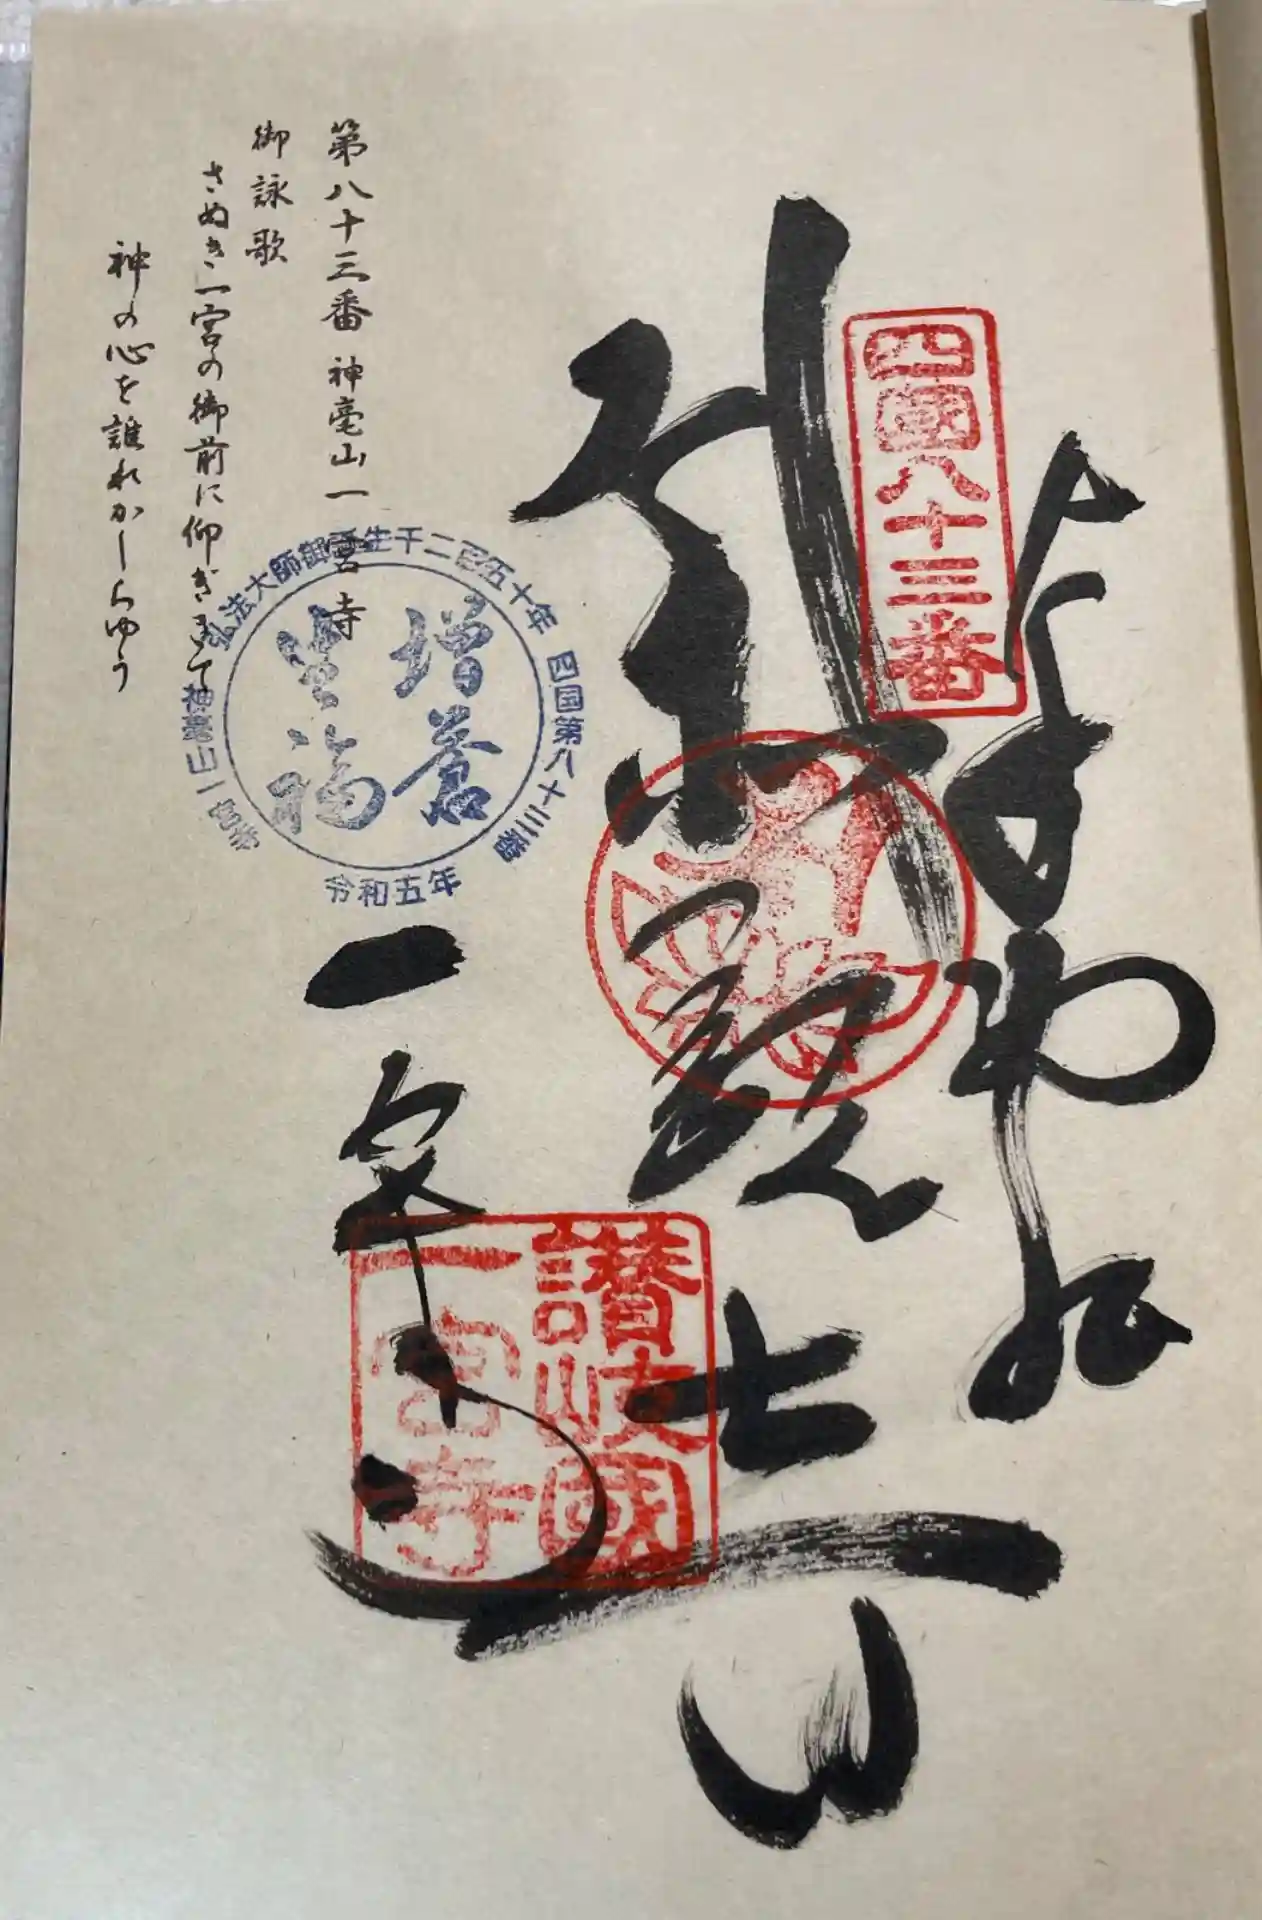 四國八十三番
奉拝
聖観世音
一宮寺
讃岐國
一宮寺
第八十三番 神毫山一宮寺
御詠歌
さぬき一宮の御前に仰ぎきて
神の心を誰れかしらゆう
弘法大師御誕生千二百五十年 四国第八十三番
神毫山一宮寺
令和五年